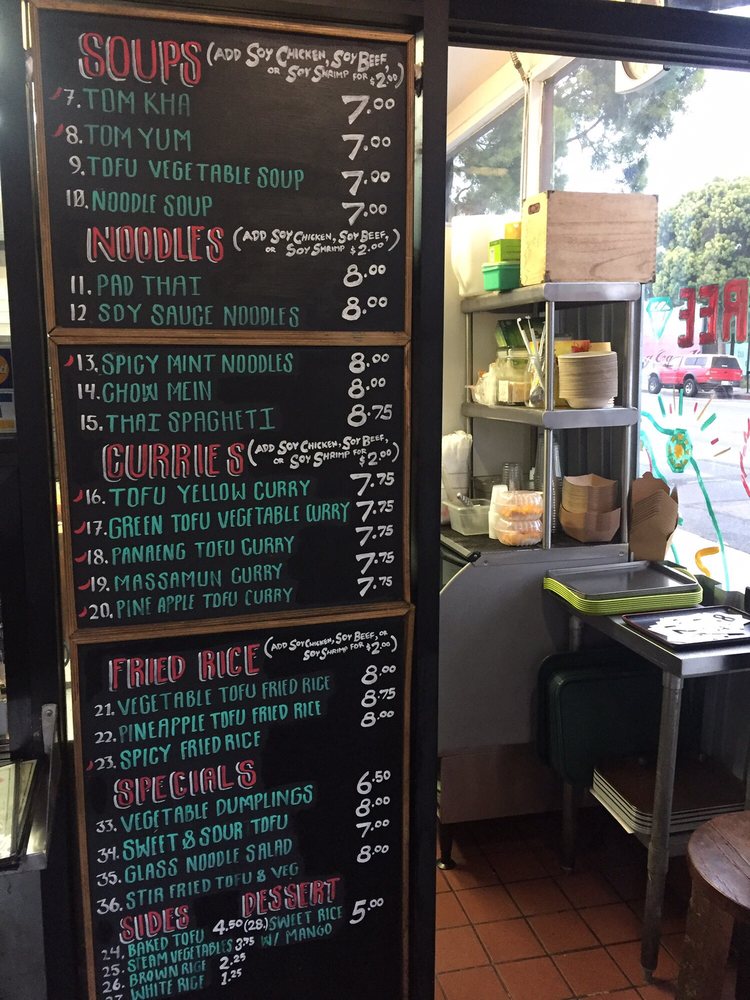 SOUPS (ADD SOY CHICKEN, SOY BEEF,
OR SOY SHRIMP FOR $2.00)
7. TOM KHA 7.00
8. TOM YUM 7.00
9. TOFU VEGETABLE SOUP 7.00
10. NOODLE SOUP 7.00
NOODLES (ADD SOY CHICKEN, SOY BEEF,
OR SOY SHRIMP $2.00)
11. PAD THAI 8.00
12 SOY SAUCE NOODLES 8.00
13. SPICY MINT NOODLES 8.00
14. CHOW MEIN 8.00
15. THAI SPAGHETI 8.75
CURRIES (ADD SOY CHICKEN, SOY BEEF,
OR SOY SHRIMP FOR
$2.00)
16. TOFU YELLOW CURRY 7.75
17. GREEN TOFU VEGETABLE CURRY 7.75
18. PANAENG TOFU CURRY 7.75
19. MASSAMUN CURRY 7.75
20. PINE APPLE TOFU CURRY 7.75
FRIED RICE (ADD SOY CHICKEN, SOY BEEF, OR
SOY SHRIMP FOR $2.00)
21. VEGETABLE TOFU FRIED RICE 8.00
22. PINEAPPLE TOFU FRIED RICE 8.75
23. SPICY FRIED RICE 8.00
SPECIALS
33. VEGETABLE DUMPLINGS 6.50
34. SWEET & SOUR TOFU 8.00
35. GLASS NOODLE SALAD 7.00
36. STIR FRIED TOFU & VEG 8.00
SIDES
24. BAKED TOFU 4.50
25. STEAM VEGETABLES 3.75
26. BROWN RICE 2.25
27 WHITE RICE 1.25
DESSERT
(28.) SWEET RICE 5.00
W/ MANGO